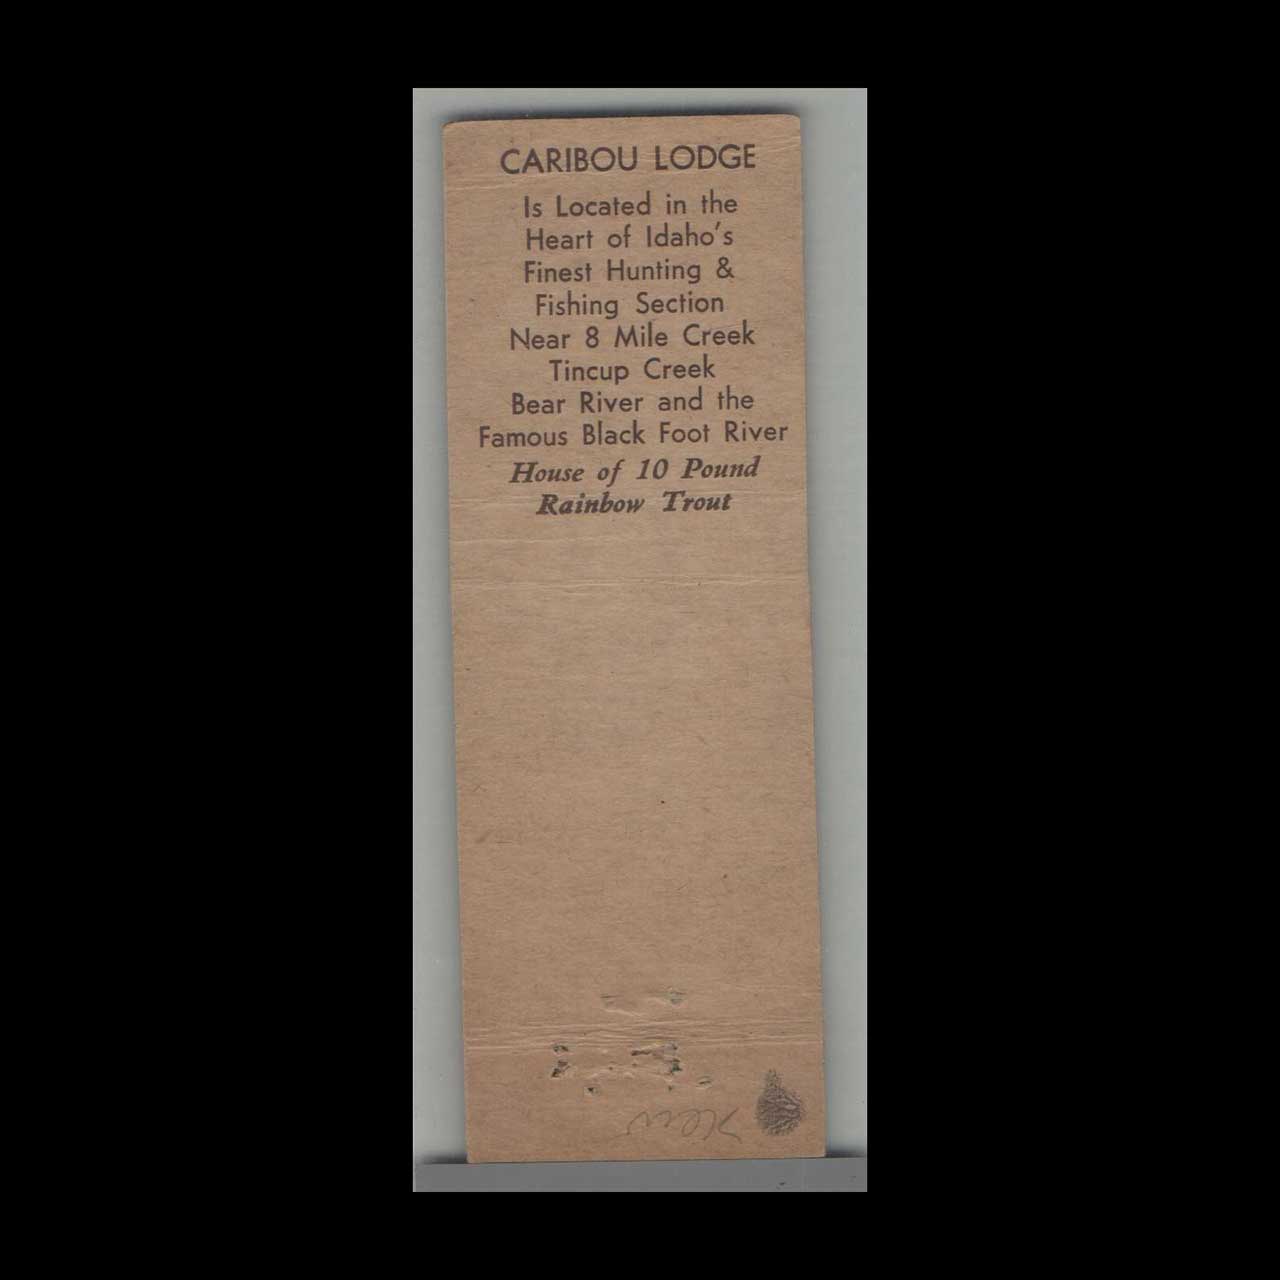 CARIBOU LODGE
Is Located in the
Heart of Idaho's
Finest Hunting &
Fishing Section
Near 8 Mile Creek
Tincup Creek
Bear River and the
Famous Black Foot River
House of 10 Pound
Rainbow Trout